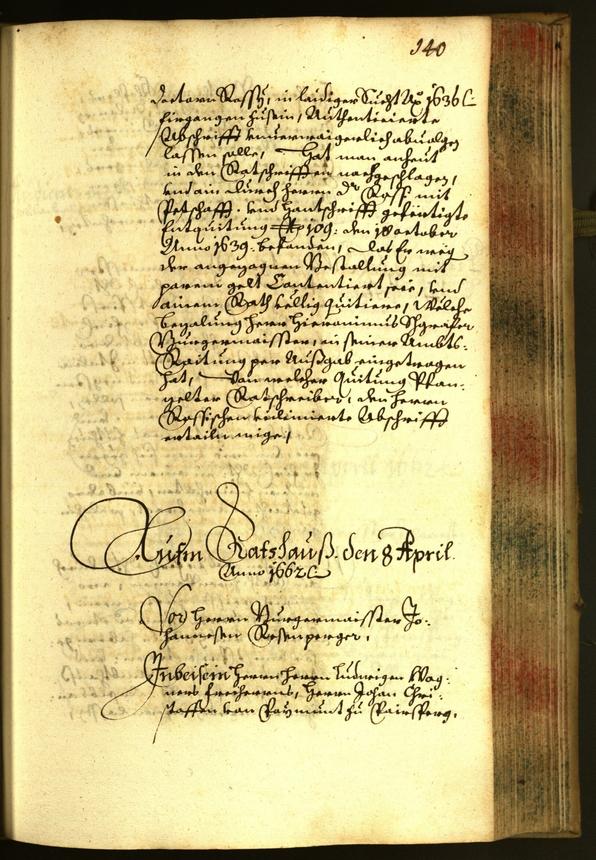 140
doctorn Rossy, in laidiger Sucht Aº 1636
fürgangen husein, Authentisierte
Abschrifft unverwaigerlich abvolgen
lassen solle, Hat man anheut
in den Ratschrifften nachgeschlagen,
und ain durch herrn Dr Rossi mit
Petschafft: und Hantschrifft gefertigte
Entquitung No 109: den 18 october
Anno 1639: befunden, das Er weg
der angezognen Bestallung mit
parem gelt Contentiert seie, und
ainem Rath völlig quitiere, Welche
bezalung herr Hieronimus
Burgermaisster, in seiner Ambts-
Raitung per Aussgab eingetragen
hat, Von welcher Quitung Plan-
gelter Ratschreiber, den herrn
Rossischen vidimierte Abschrifft
ertailn mige,
Aufm Ratshauß den 8 April
Anno 1662
Vor Herrn Burgermaisster Jo-
hannesen Rosenperger,
Inbeisein Herrn herrn Ludwigen Wag-
ners freiherrns, Herrn Johan Chri-
stoffen von Paymunt zu Pairsperg,